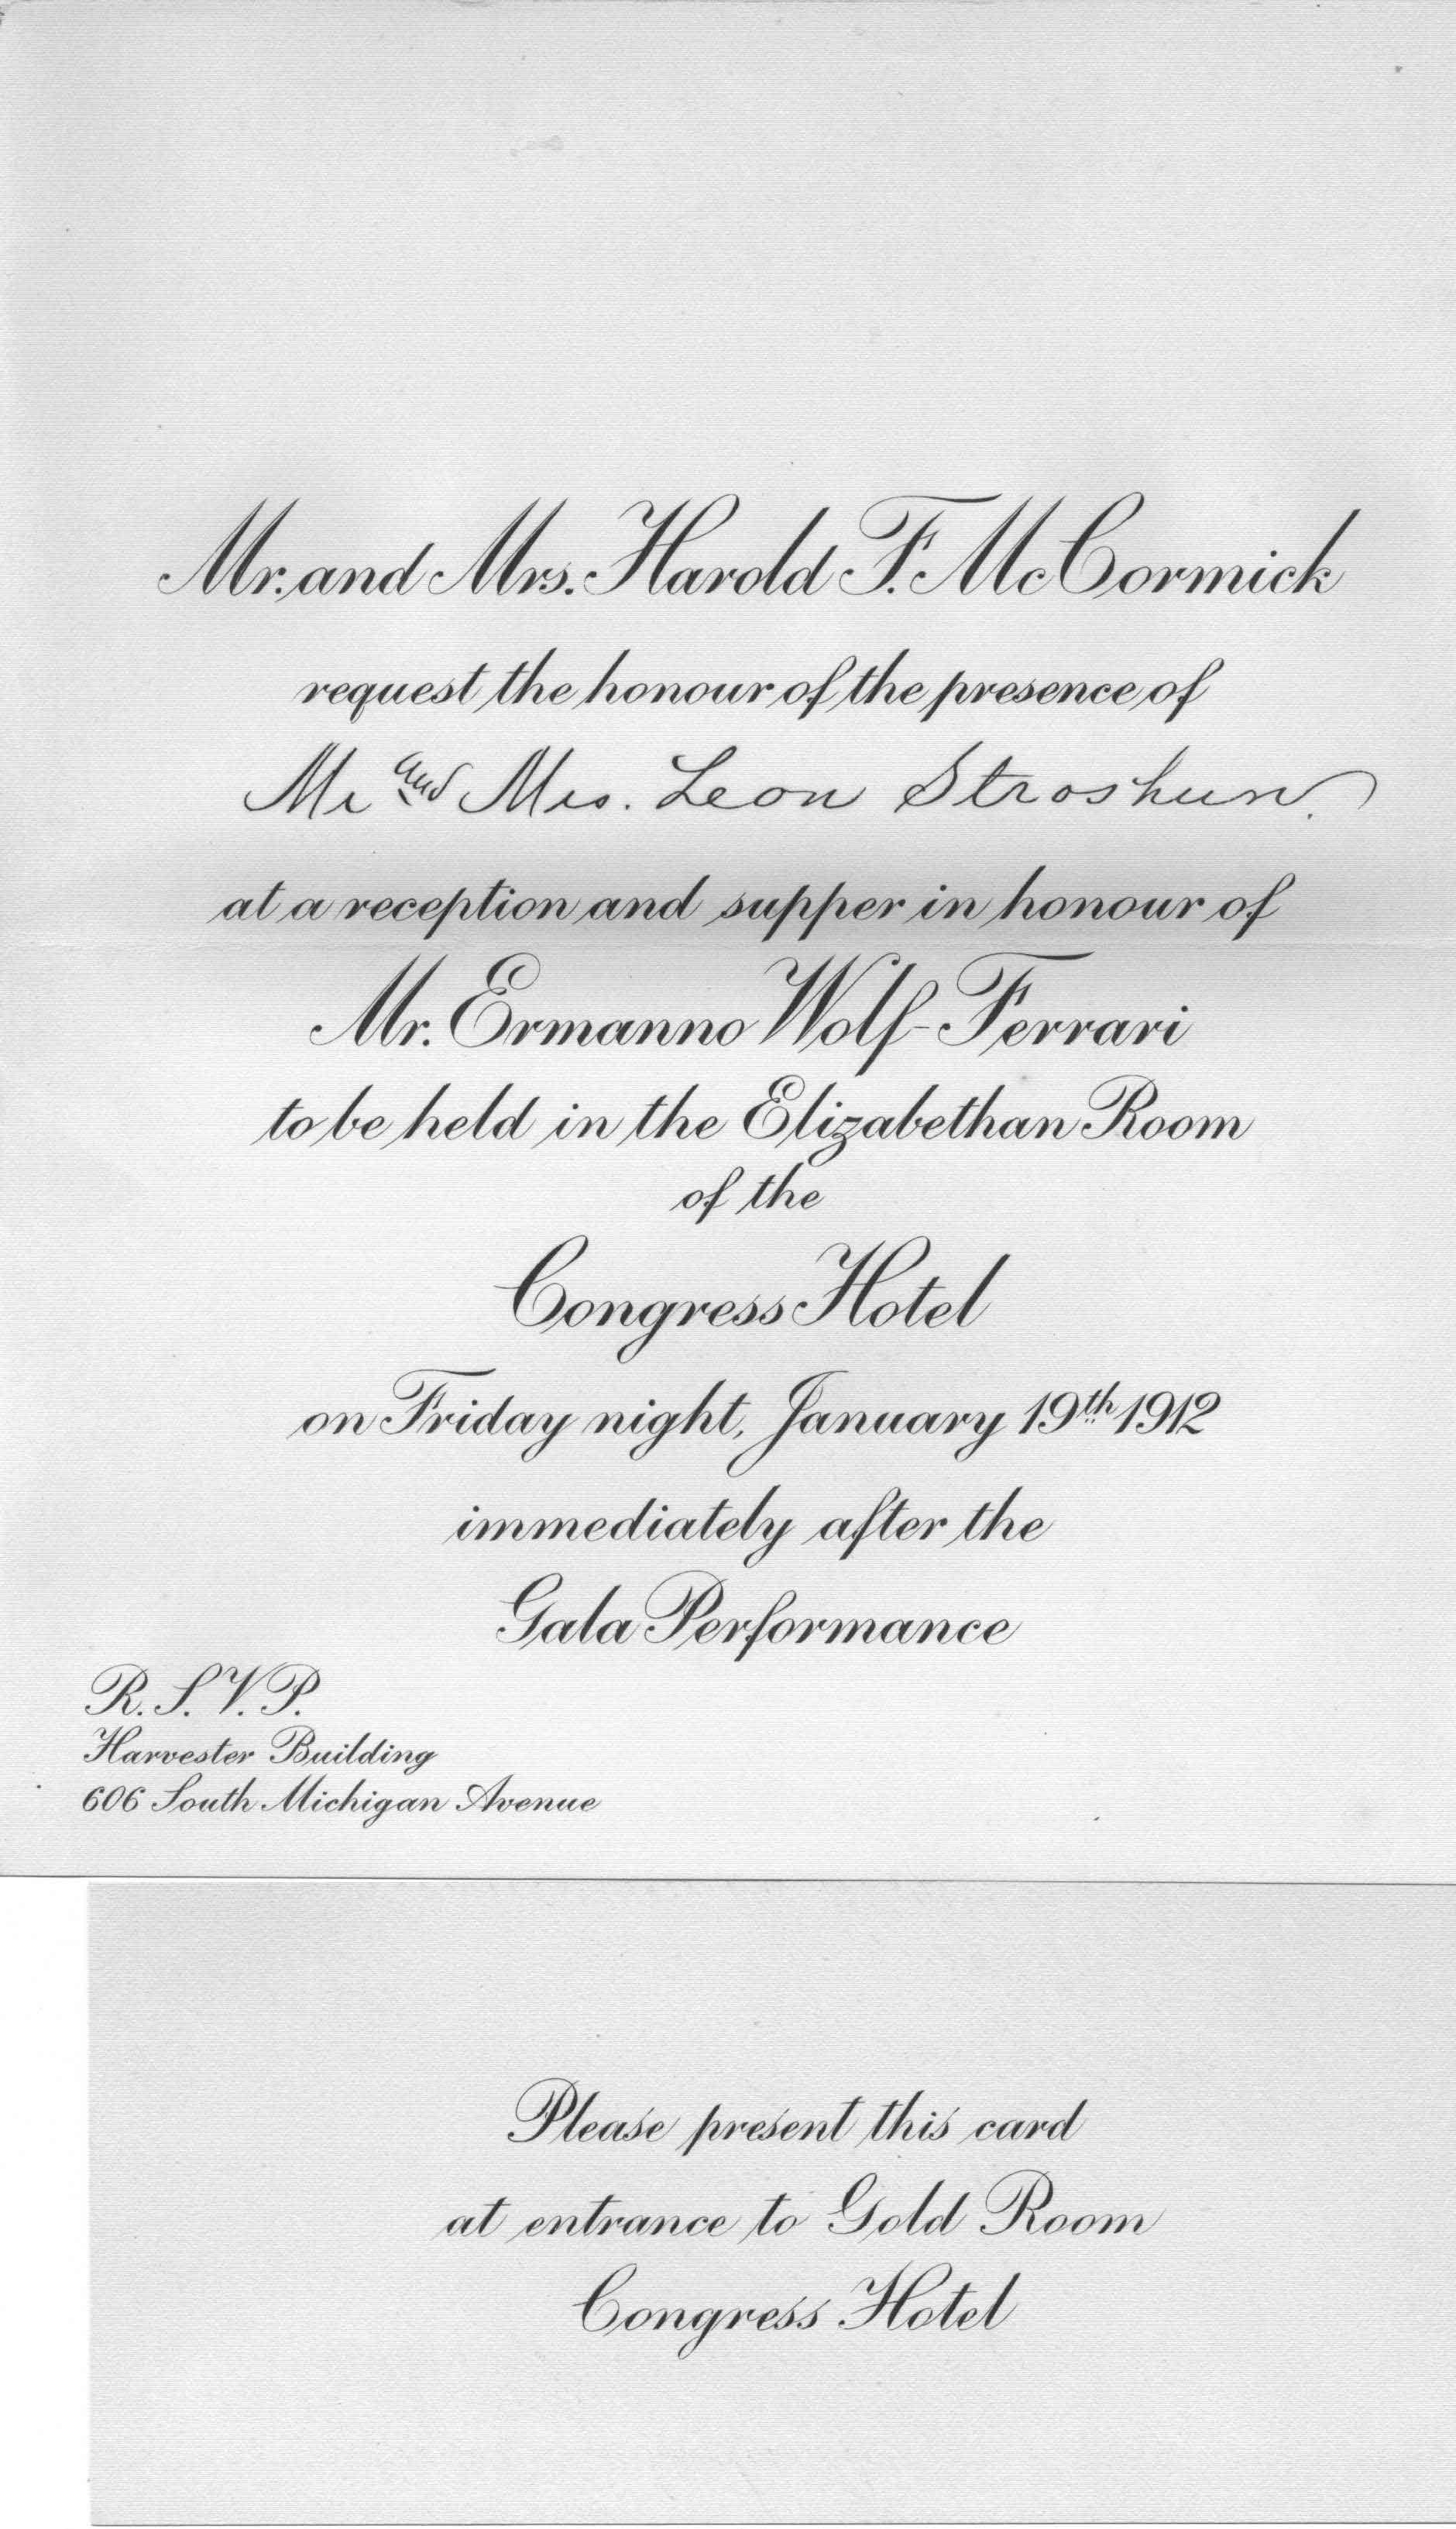 Mr. and Mrs. Harold F. McCormick
request the honour of the presence of
Mr and Mrs. Leon Stroshun.
at a reception and supper in honour of
Mr. Ermanno Wolf-Ferrari
to be held in the Elizabethan Room
of the
Congress Hotel
on Friday night, January 19th 1912
immediately after the
Gala Performance
R. S. V. P.
Harvester Building
606 South Michigan Avenue
Please present this card
at entrance to Gold Room
Congress Hotel